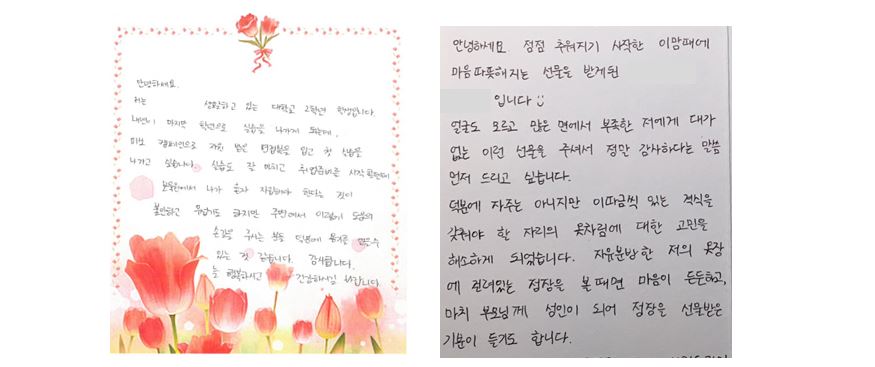 안녕하세요.
저는 생활하고 있는 대학교 2학년 학생입니다.
내년이 마지막 학년으로 실습을 나가게 되는데,
미소 캠페인으로 지원 받은 면접복을 입고 첫 실습을
나가고 싶습니다. 실습도 잘 마치고 취업준비를 시작
보육원에서 나가 홀로 자립해야 한다는 것이
불안하고 무섭기도 하지만 주변에서 이렇게 도움의
손길을 주시는 분들 덕분에 용기를 얻을 수
있는 것 같습니다. 감사합니다.
늘 행복하시고 건강하시길 바랍니다
안녕하세요. 점점 추워지기 시작한 이맘때에
마음 따뜻해지는 선물을 받게된
입니다 :)
얼굴도 모르고 많은 면에서 부족한 저에게 대가
없는 이런 선물을 주셔서 정말 감사하다는 말씀
먼저 드리고 싶습니다.
덕분에 자주는 아니지만 이따금씩 있는 격식을
갖춰야 할 자리의 옷차림에 대한 고민을
해소하게 되었습니다. 자유분방한 저의 옷장
에 걸려있는 정장을 볼 때면 마음이 든든하고,
마치 부모님께 성인이 되어 정장을 선물받은
기분이 들기도 합니다.